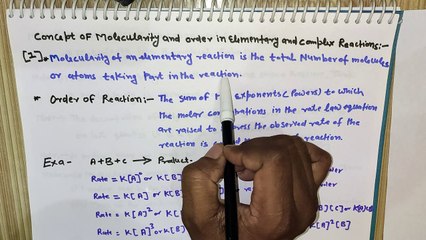 Concept of Molecularity and order in Elementary and Complex Reactions:-
[I]* Molecularity of an elementary reaction is the total Number of molecules
or atoms taking Part in the reaction.
* Order of Reaction:- The sum of exponents (Powers) to which
the molar concentrations in the rate law equation
are raised to express the observed rate of the
reaction is of reaction.
Exa- A+B+C → Product
Rate = K[A]¹ or K[B]
Rate = K[A] or K[B]
Rate = K[A]² or K[ B][C] or K[A][B]
Rate = K[A]³ or K[B] ]²[B]